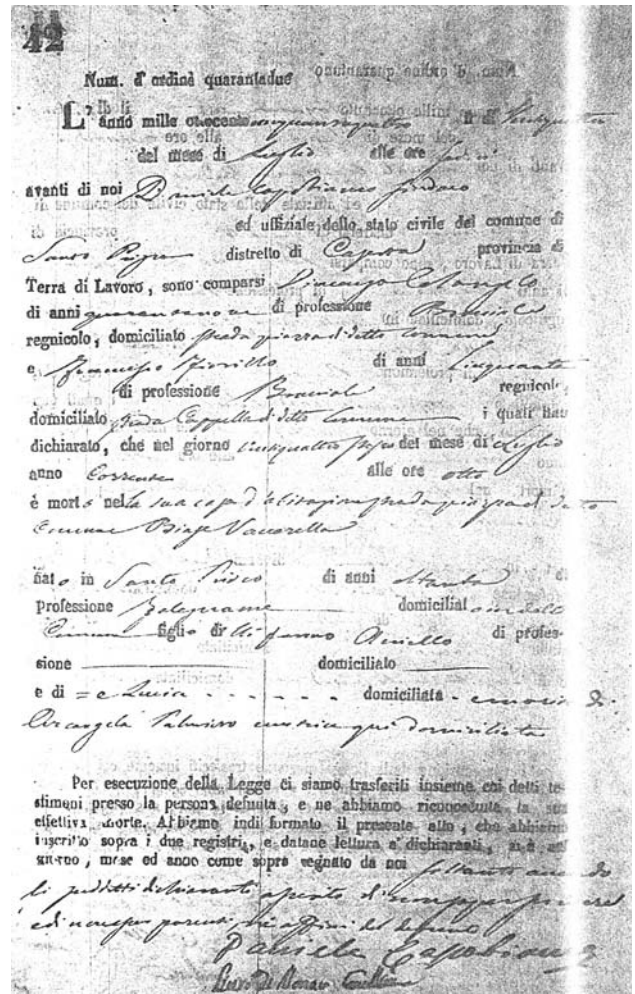 42
Num. d'ordine quarantadue
L'anno mille ottocento cinquantaquattro il dì ventiquattro
del mese di Luglio alle ore
avanti di noi Daniele Capobianco Sindaco
ed uffiziale dello stato civile del comune di
Santo Prisco distretto di Caserta provincia di
Terra di Lavoro, sono comparsi Vincenzo
di anni quarantanove di professione Bracciale
regnicolo, domiciliato strada piazza di detto Comune
e Francesco Fiorillo di anni Cinquanta
di professione Bracciale regnicolo,
domiciliato strada Cappella di detto Comune i quali han
dichiarato, che nel giorno ventiquattro del mese di Luglio
anno Corrente alle ore otto
è morto nella sua casa d'abitazione strada piazza di detto
Comune Biase Vaccarella
nato in Santo Prisco di anni ottanta
professione Falegname domiciliato in detto
Comune figlio di Aniello di profes-
sione domiciliato
e di = e Lucia domiciliata
Arcangela Palmiero qui domiciliata
Per esecuzione della Legge ci siamo trasferiti insieme coi detti te-
stimoni presso la persona defunta, e ne abbiamo riconosciuta la sua
effettiva morte. Abbiamo indi formato il presente atto, che abbiamo
inscritto sopra i due registri, e datane lettura a' dichiaranti, si è nel
giorno, mese ed anno come sopra segnato da noi soltanto avendo
li predetti dichiaranti di non
ed non esser parenti né affini del defunto
Daniele Capobianco
Cancelliere